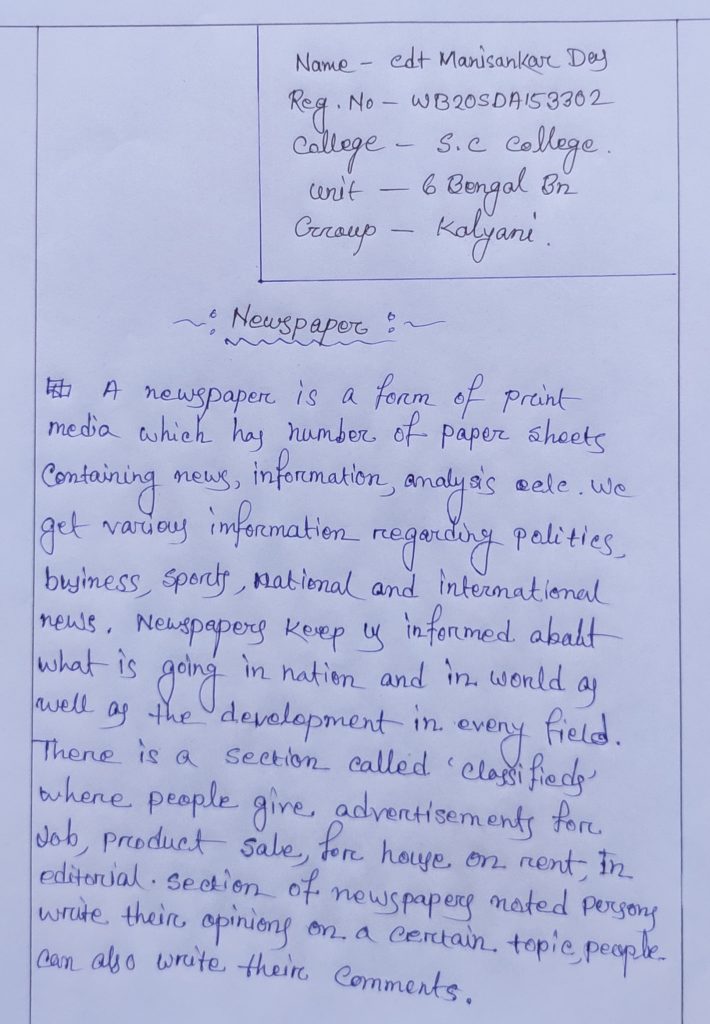 Name - cdt Manisankar Dey
Reg. No - WB20SDA153302
College - S.C College.
unit - 6 Bengal Bn
Group - Kalyani.
~: Newspaper :~
A newspaper is a form of print
media which has number of paper sheets
Containing news, information, analysis eetc. We
get various imformation regarding politics,
business, sports, national and international
news. Newspapers keep us informed abaut
what is going in nation and in world as
well as the development in every field.
There is a section called 'classifieds'
where people give advertisements for
Job, product sale, for house on rent, In
editorial. section of newspapers noted persons
write their opinions on a certain topic, people
can also write their comments.